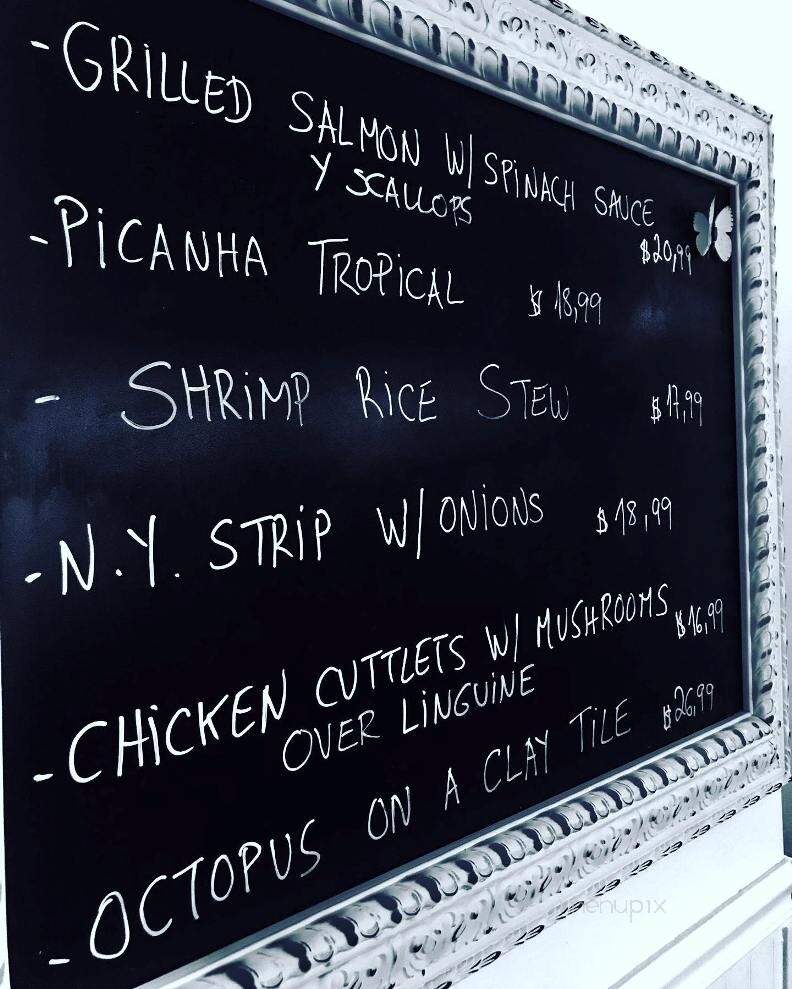 - GRILLED SALMON W/ SPINACH SAUCE
Y SCALLOPS $20,99
- PICANHA TROPICAL $18,99
- SHRIMP RICE STEW $17,99
- N.Y. STRIP W/ ONIONS $18,99
- CHICKEN CUTTLETS W/ MUSHROOMS $16,99
OVER LINGUINE
- OCTOPUS ON A CLAY TILE $26,99
menupix